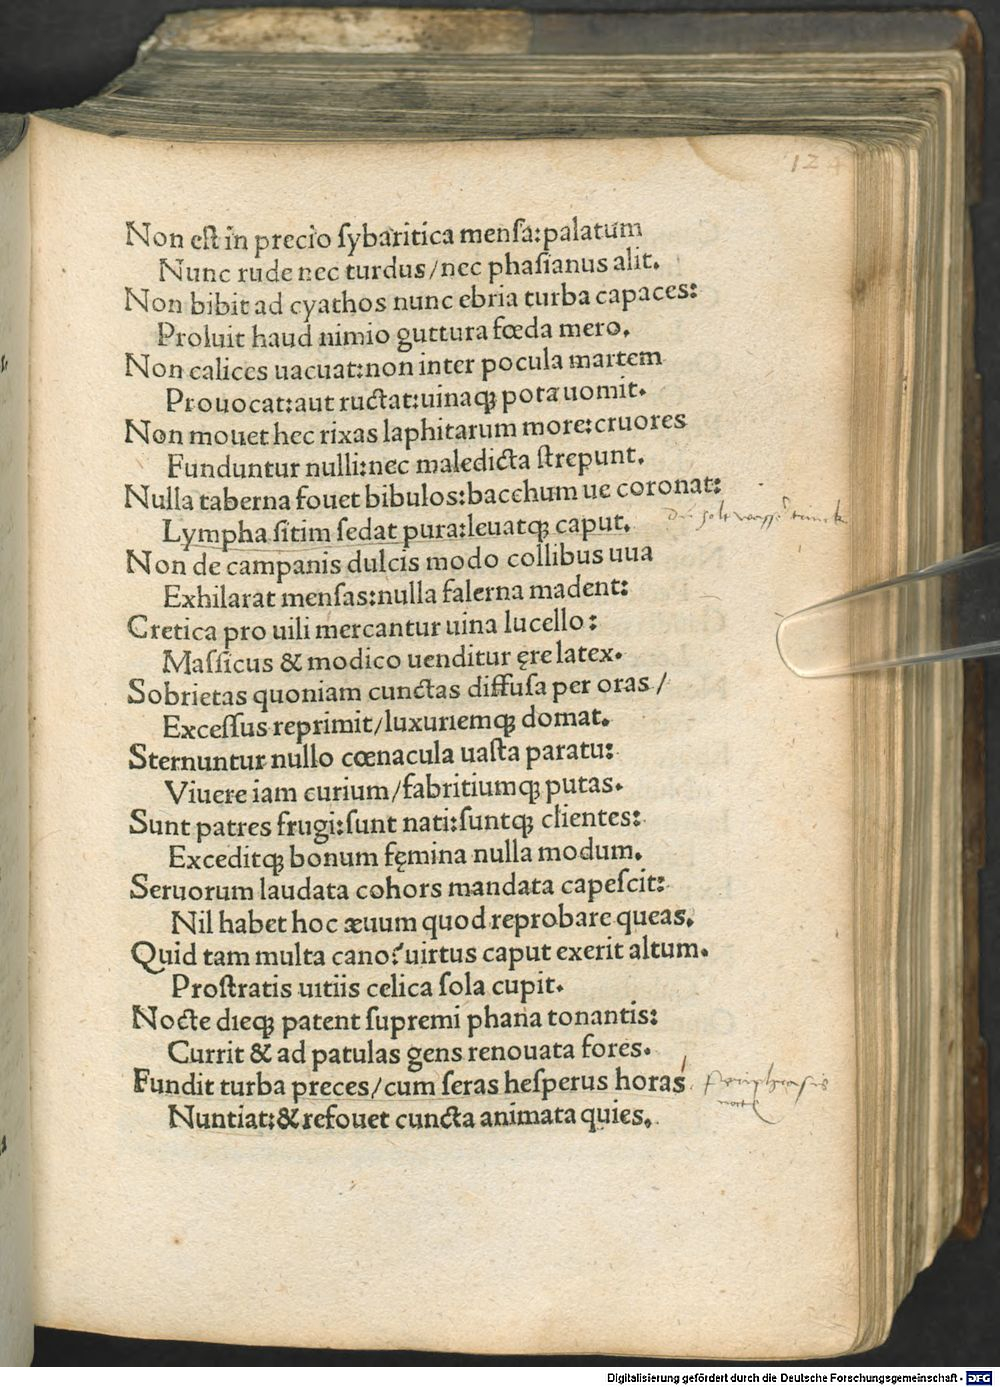 124
Non eſt in precio ſybaritica menſa:palatum
Nunc rude nec turdus/nec phaſianus alit.
Non bibit ad cyathos nunc ebria turba capaces:
Proluit haud nimio guttura fœda mero.
Non calices uacuat:non inter pocula martem
Prouocat:aut ructat:uinaqꝫ pota uomit.
Non mouet hec rixas laphitarum more:cruores
Funduntur nulli:nec maledicta ſtrepunt.
Nulla taberna fouet bibulos:bacchum ue coronat:
Lympha ſitim ſedat pura:leuatqꝫ caput.
Non de campanis dulcis modo collibus uua
Exhilarat menſas:nulla falerna madent:
Cretica pro uili mercantur uina lucello:
Maſſicus & modico uenditur ęre latex.
Sobrietas quoniam cunctas diffuſa per oras/
Exceſſus reprimit/luxuriemqꝫ domat.
Sternuntur nullo cœnacula uaſta paratu:
Viuere iam curium/fabritiumqꝫ putas.
Sunt patres frugi:ſunt nati:ſuntqꝫ clientes:
Exceditqꝫ bonum fęmina nulla modum.
Seruorum laudata cohors mandata capeſcit:
Nil habet hoc æuum quod reprobare queas.
Quid tam multa cano?uirtus caput exerit altum.
Proſtratis uitiis celica ſola cupit.
Nocte dieqꝫ patent ſupremi phana tonantis:
Currit & ad patulas gens renouata fores.
Fundit turba preces/cum ſeras heſperus horas
periphrasis
noctis
Nuntiat:& refouet cuncta animata quies.
Digitalisierung gefördert durch die Deutsche Forschungsgemeinschaft - DFG